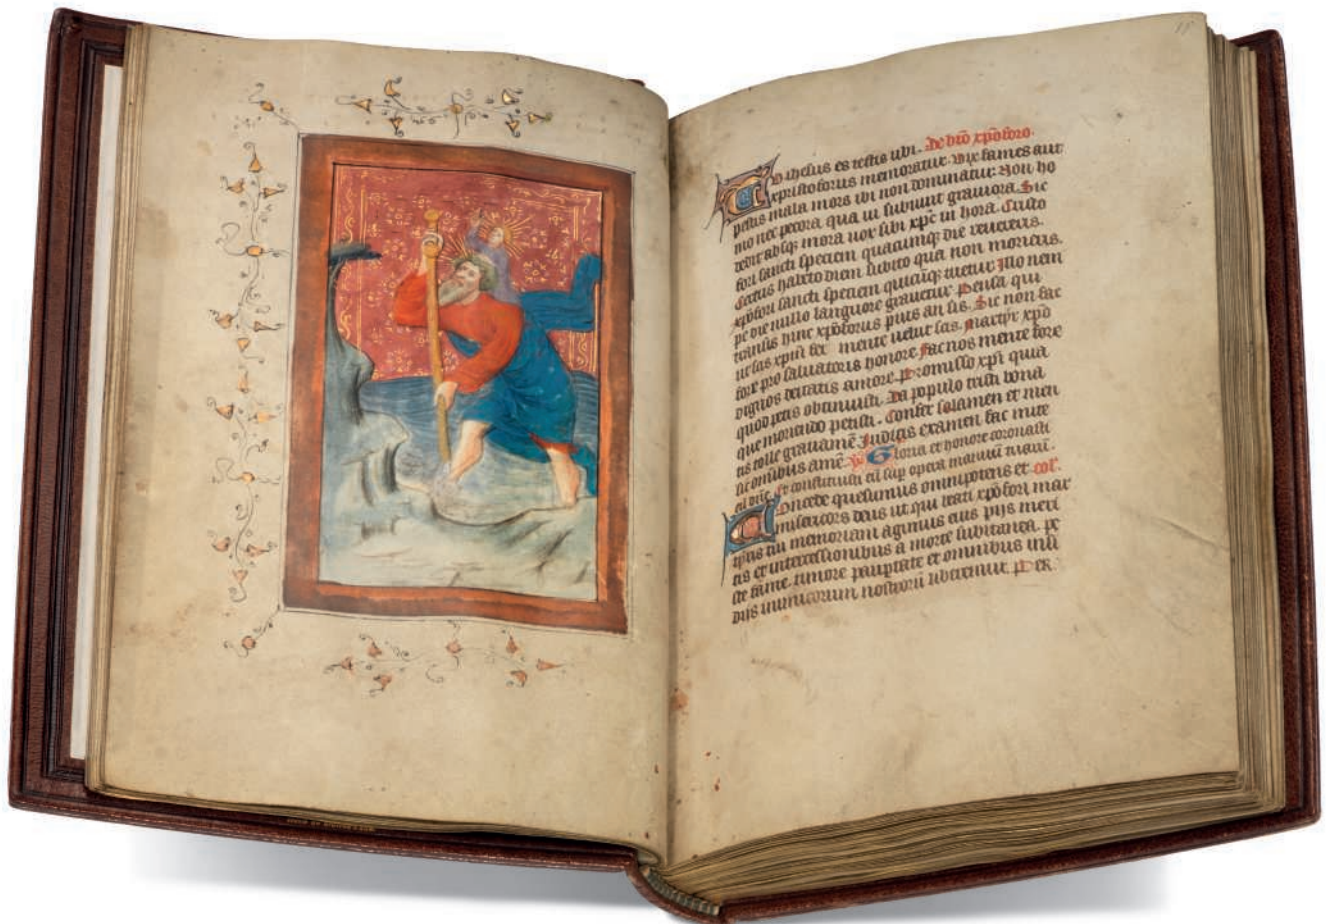 Tu ihesus es testis ubi. De bt̄o xp̄oforo.
xpristoforus memoratur. Vix fames aut
pestis mala mors ibi non dominatur. Non ho
mo nec pecora. qua ui subeunt grauiora. Sic
redit absq; mora uox sibi xp̄c in hora. Cristo
fori sancti speciem quacumq; die
Certus habeto diem subito qua non morieris.
xp̄ofori sancti speciem quicūq; tuetur. Illo nem
pe die nullo languore grauetur. Pensa qui
transis hinc xp̄oforus pius an sis. Sic non fac
ut sis xp̄m fer mente uelut sis. Martyr xp̄o
fore pro saluatoris honore. Fac nos mente fore
dignos deitatis amore. Promisso xp̄i quia
quod petis obtinuisti. Da populo tristi bona
que moriendo petisti. Confer solamen et men
tis tolle grauamē Iudicis examen fac mite
sit omibus amē. V̄ Gloria et honore coronasti
eū dn̄e. Et constituisti eū sup̄ opera manuū tuaꝝ.
Concede quesumus omnipotens et col'.
misericors deus ut qui beati xp̄ofori mar
tyris tui memoriam agimus eius pijs meri
tis et intercessionibus a morte subitanea. pe
ste fame. timore paupertate et omnibus insi
dijs inimicorum nostrorū liberemur. Per.